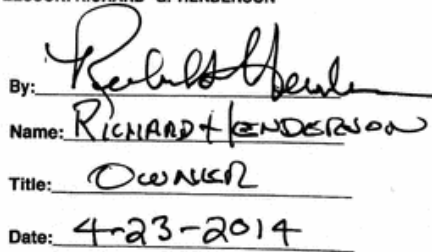 RICHARD G. HENDERSON
By:
Name: RICHARD HENDERSON
Title: OWNER
Date: 4-23-2014